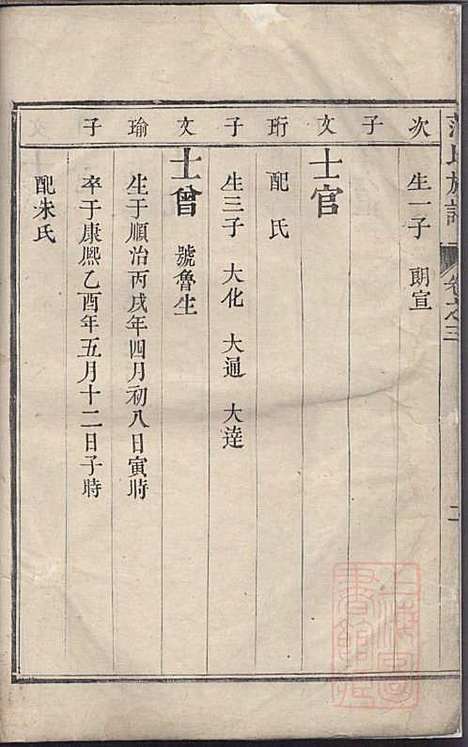 氏族譜 卷之三 二
次 生一子 朗宣
子
文 士官
珩 配 氏
子 生三子 大化 大通 大達
文 士曾 號魯生
瑜 生于順治丙戌年四月初八日寅時
子 卒于康熙乙酉年五月十二日子時
配朱氏
上海圖書館藏